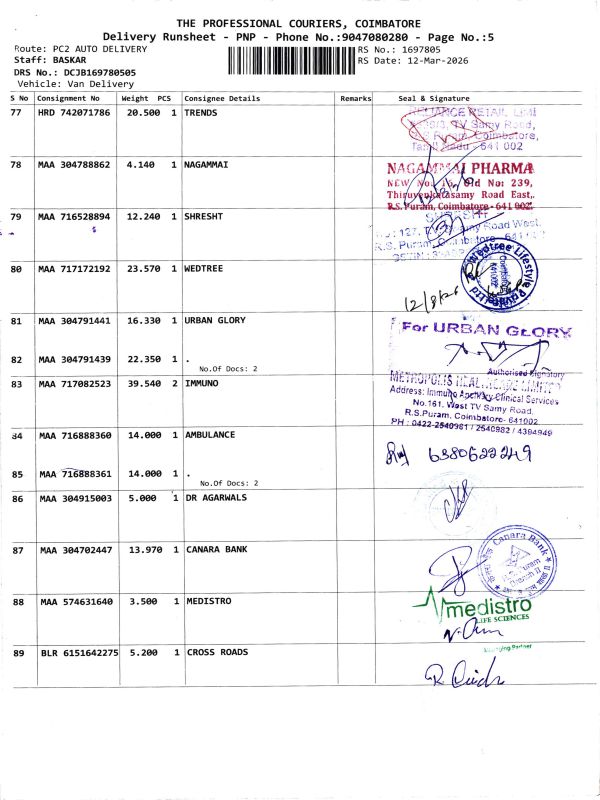 THE PROFESSIONAL COURIERS, COIMBATORE
Delivery Runsheet - PNP - Phone No.:9047080280 - Page No.:5
Route: PC2 AUTO DELIVERY
RS No.: 1697805
Staff: BASKAR
RS Date: 12-Mar-2026
DRS No.: DCJB169780505
Vehicle: Van Delivery
S No Consignment No Weight PCS Consignee Details Remarks Seal & Signature
77 HRD 742071786 20.500 1 TRENDS
RELIANCE RETAIL
TV Samy Road,
R.S Puram, Coimbatore,
Tamil Nadu - 641 002
78 MAA 304788862 4.140 1 NAGAMMAI
NAGAMMAI PHARMA
NEW No: Old No: 239,
Thiruvenkatasamy Road East,
R.S. Puram, Coimbatore - 641 002.
79 MAA 716528894 12.240 1 SHRESHT
127, Samy Road West,
R.S. Puram, Coimbatore
80 MAA 717172192 23.570 1 WEDTREE
Wedtree Lifestyle
12/3/26
81 MAA 304791441 16.330 1 URBAN GLORY
For URBAN GLORY
82 MAA 304791439 22.350 1 .
No.Of Docs: 2
Authorised Signatory
83 MAA 717082523 39.540 2 IMMUNO
METROPOLIS HEALTHCARE LIMITED
Address: Immuno Ancillary Clinical Services
No.161, West TV Samy Road,
R.S.Puram, Coimbatore- 641002
PH : 0422-2540981 / 2540982 / 4394949
84 MAA 716888360 14.000 1 AMBULANCE
85 MAA 716888361 14.000 1 .
No.Of Docs: 2
86 MAA 304915003 5.000 1 DR AGARWALS
87 MAA 304702447 13.970 1 CANARA BANK
Canara Bank
R.S. Puram
Branch II
88 MAA 574631640 3.500 1 MEDISTRO
medistro
LIFE SCIENCES
Managing Partner
89 BLR 6151642275 5.200 1 CROSS ROADS